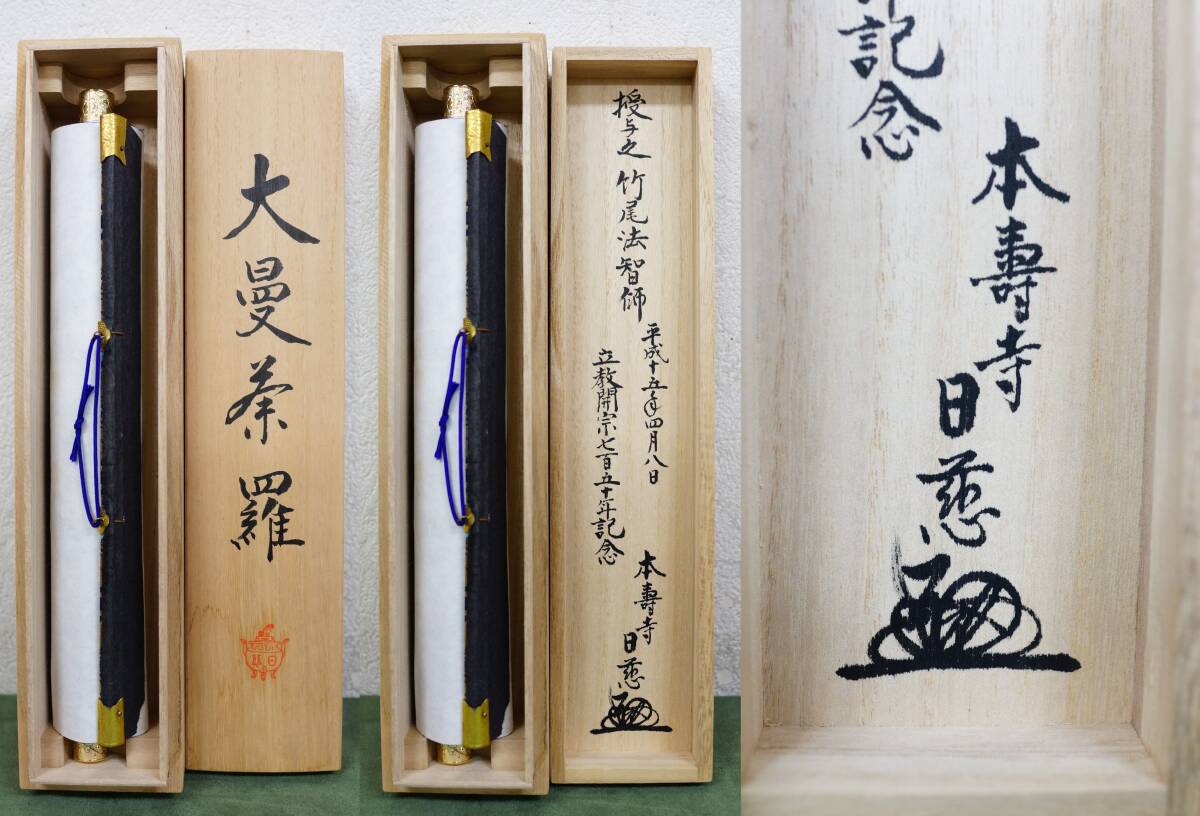 大曼荼羅
授与之 竹尾法智師
平成十五年四月八日
立教開宗七百五十年記念
本壽寺
日慈
記念
本壽寺
日慈